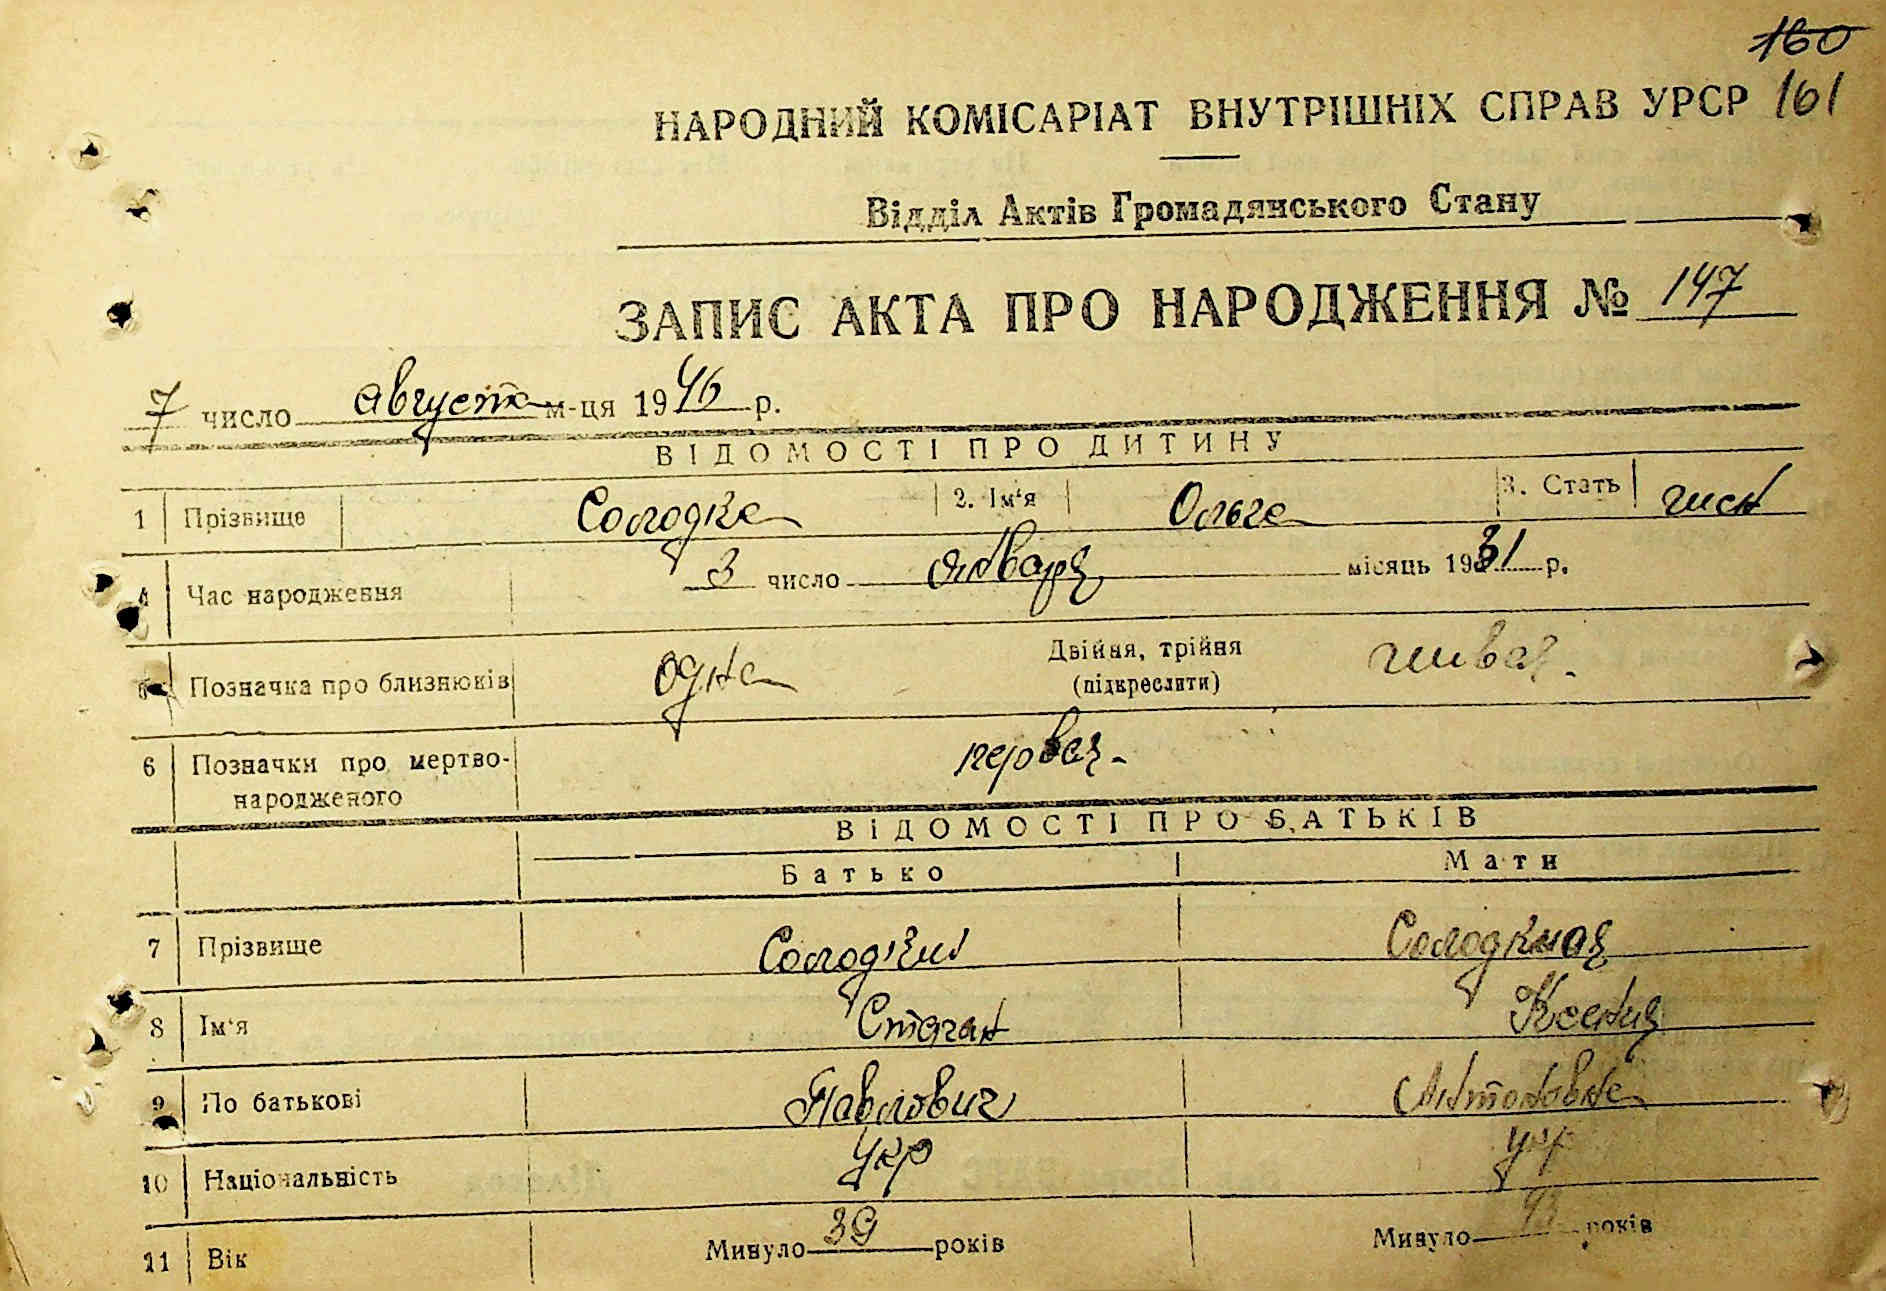 160
НАРОДНИЙ КОМІСАРІАТ ВНУТРІШНІХ СПРАВ УРСР 161
Відділ Актів Громадянського Стану
ЗАПИС АКТА ПРО НАРОДЖЕННЯ № 147
7 число августа м-ця 1946 р.
ВІДОМОСТІ ПРО ДИТИНУ
1 Прізвище Солодка 2. Ім'я Ольга 3. Стать жен
4 Час народження 3 число января місяць 1931 р.
5 Позначка про близнюків одна Двійня, трійня (підкреслити) живая.
6 Позначки про мертво-
народженого первая
ВІДОМОСТІ ПРО БАТЬКІВ
Батько Мати
7 Прізвище Солодкий Солодкая
8 Ім'я Степан Ксения
9 По батькові Павлович Антоновна
10 Національність Укр укр
11 Вік Минуло 39 років Минуло років